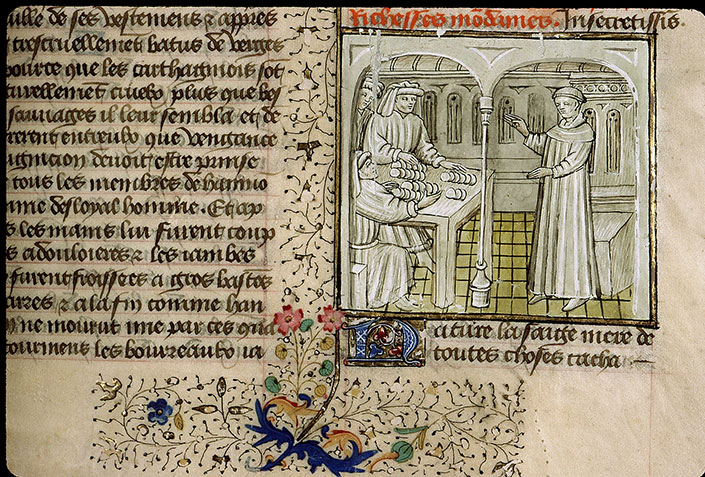 uille de ses vestemens & appres
trescruellemet batus de verges
pource que les carthaginois sot
turellemet crueulx plus que bes
sauvages il leur sembla et de
rerent entreulx que vengance
ugnicion devoit estre prinse
tous les membres de hanno
me desloyal homme. Et ap
s les mains lui furent coup
s adouloieres & les iambes
furent froissees a gros bastos
arres & ala fin comme han
ne mourut mie par tes
tourmens les bourreaulx la
Richesses modaines. In secretissis.
Nature la saige mere de
toutes choses cacha